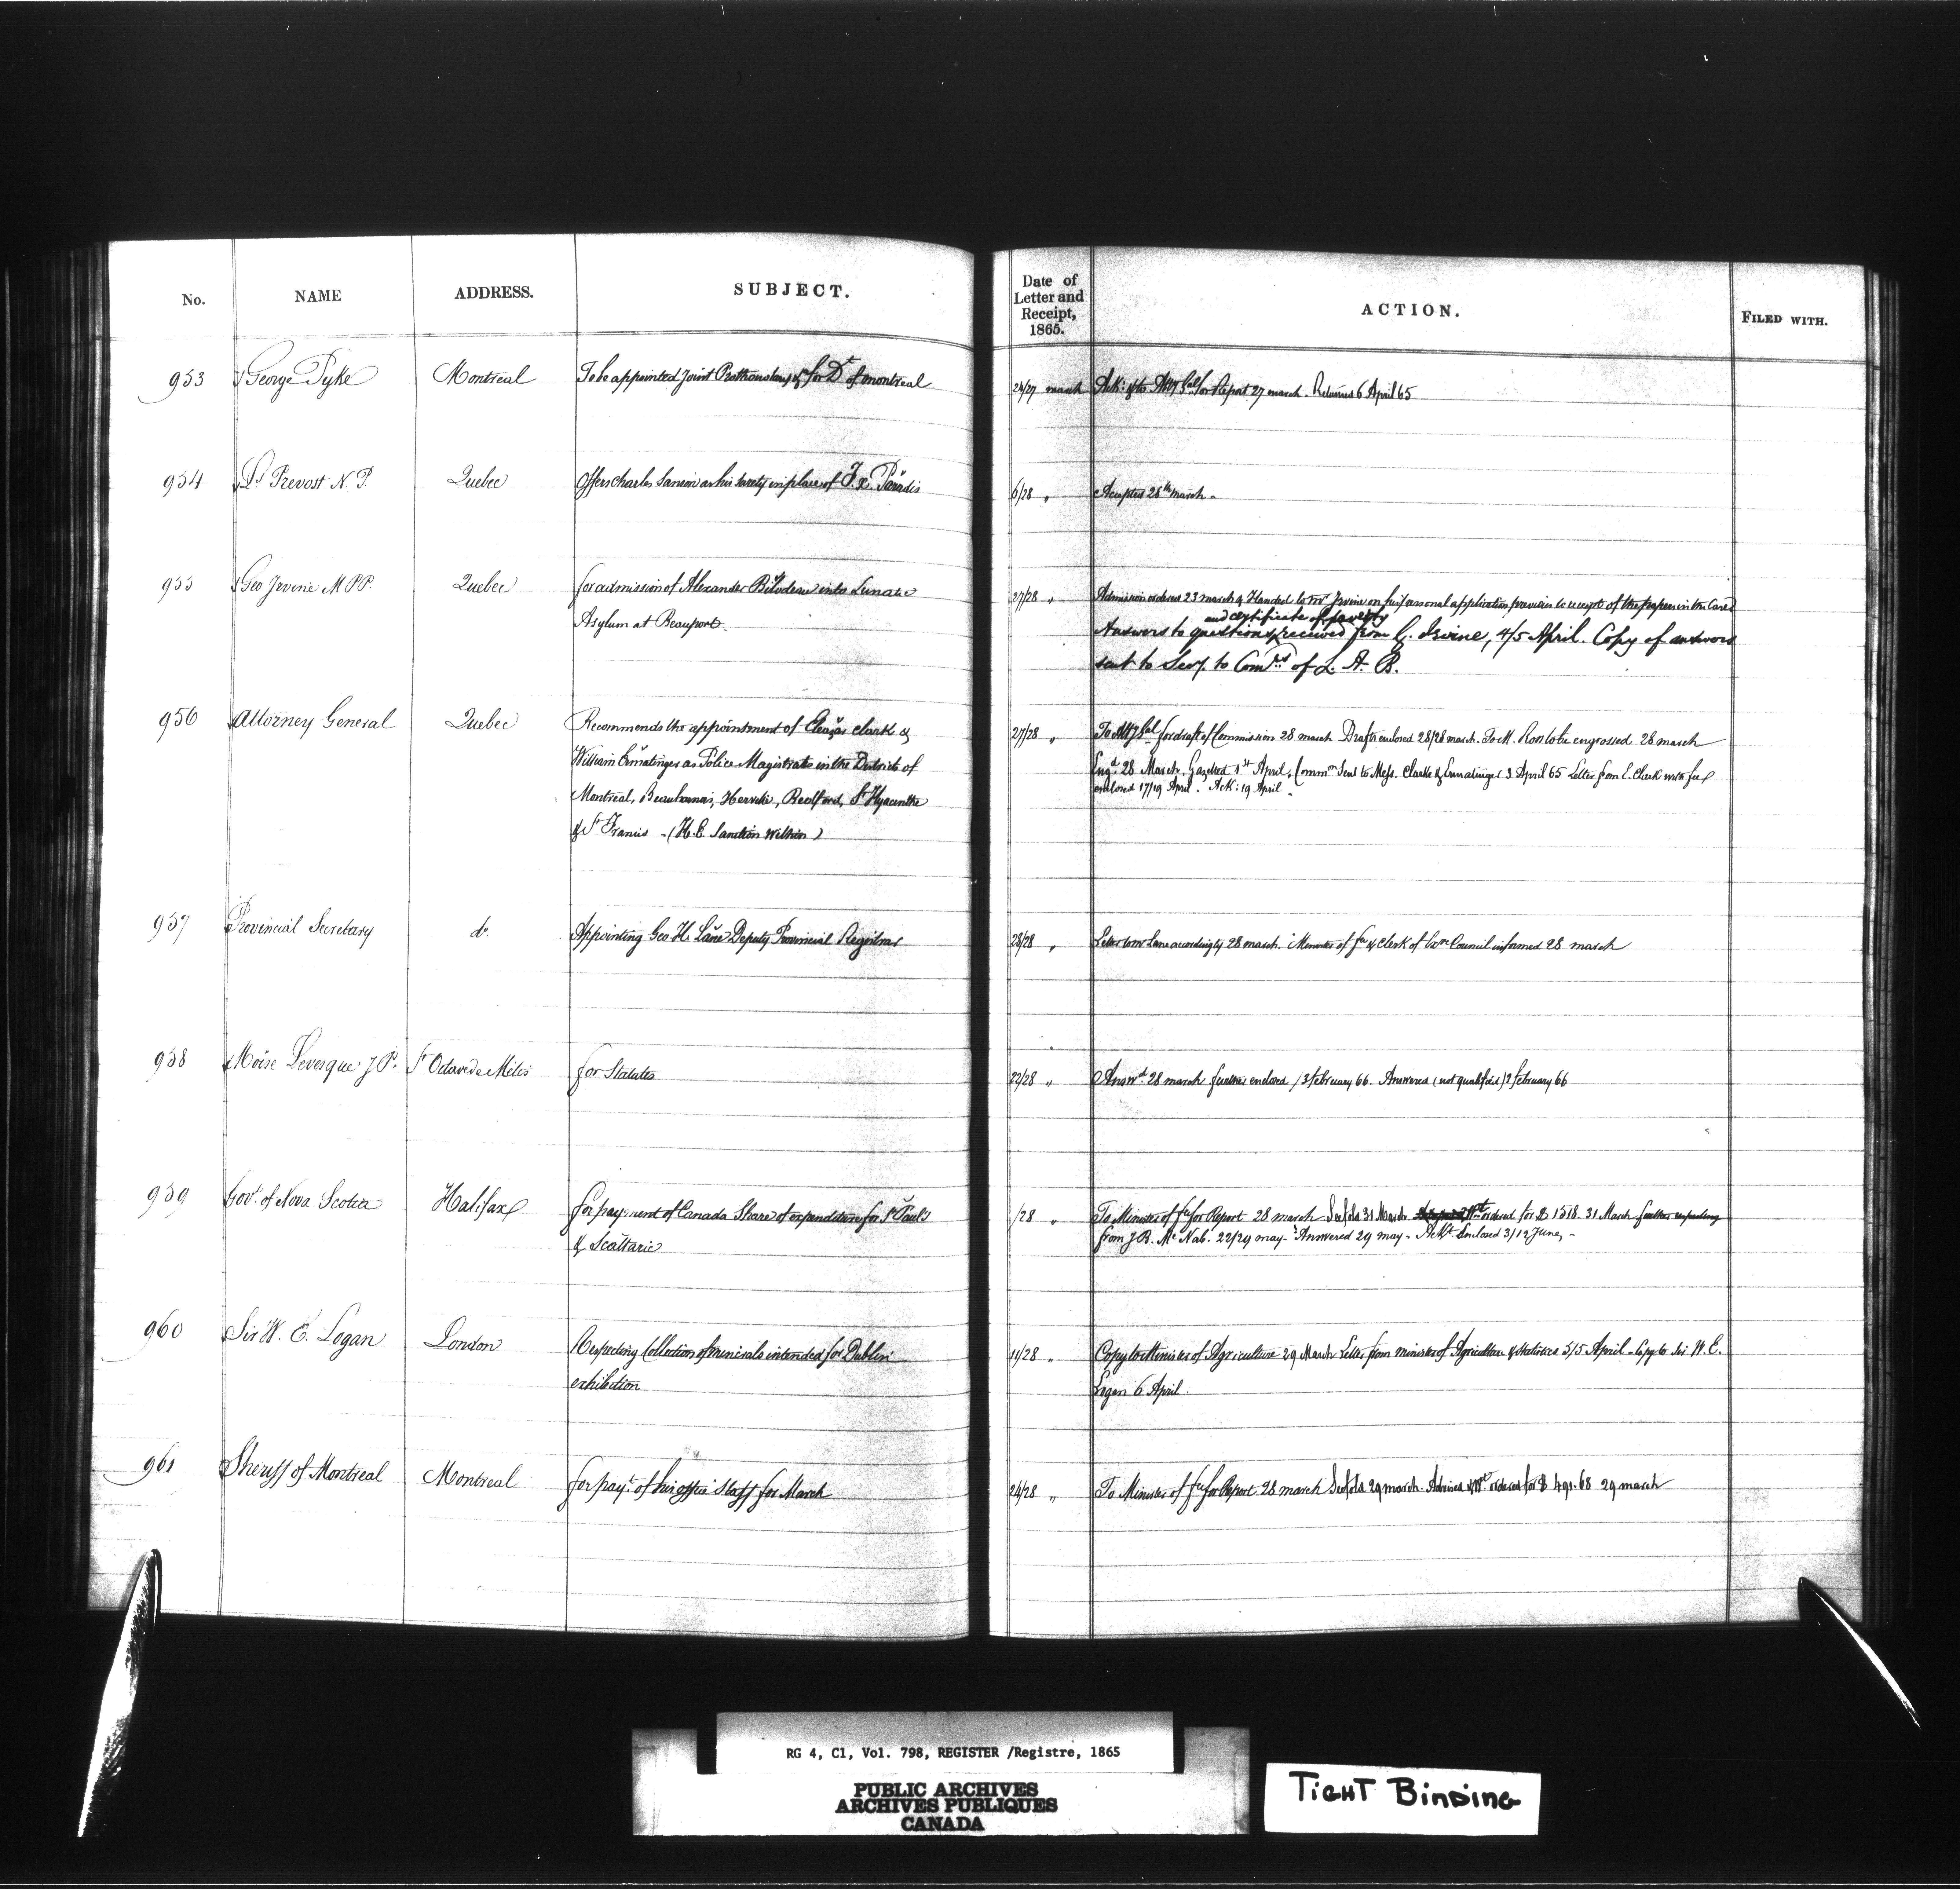 No. NAME ADDRESS. SUBJECT. Date of Letter and Receipt, 1865. ACTION. FILED WITH.
953 George Pyke Montreal To be appointed Joint Prothonotary &c for Dt of Montreal 24/27 march Ack: & to Atty Genl for Report 27 march. Returned 6 April 65
954 Ls Prevost N.P. Quebec Offers Charles Samson as his surety in place of F.X. Paradis 6/28 " Accepted 28th march.
955 Geo Irvine MPP Quebec for admission of Alexander Bilodeau into Lunatic 27/28 " Admission ordered 23 march & Handed to Mr Irvine on his personal application previous to receipt of the papers in this Case
Asylum at Beauport.
and certificate of poverty
Answers to questions received from G. Irvine, 4/5 April. Copy of answers
sent to Secy. to Comrs of L. A. B.
956 Attorney General Quebec Recommends the appointment of Eleazar Clark & 27/28 " To Atty Gal for draft of Commission 28 march Drafts enclosed 28/28 march. To M. Ross to be engrossed 28 march
William Ermatinger as Police Magistrates in the Districts of
Engd 28 March. Gazetted 1st April. Common Sent to Mess. Clarke & Ermatinger 3 April 65 Letter from E. Clark with fee
Montreal, Beauharnois, Iberville, Bedford, St Hyacinthe
enclosed 17/19 April. Ack: 19 April
& St Francis - (H.E. Sanction within)
957 Provincial Secretary do. Appointing Geo H. Lane Deputy Provincial Registrar 28/28 " Letter to Mr Lane accordingly 28 march. Minister of fce & Clerk of Exve Council informed 28 march
958 Moïse Levesque J.P. St Octave de Métis for Statutes 22/28 " Answd 28 march further enclosed /3 february 66. Answered (not qualified) 2 february 66
959 Govt. of Nova Scotia Halifax for payment of Canada Share of expenditure for St Paul's /28 " To Minister of fce for Report 28 march See fold 31 March. Wt ordered for $ 1518. 31 March further respecting
& Scattarie
from J.R. Mc Nab. 22/29 may - Answered 29 may - Ackt. Enclosed 3/12 June, -
960 Sir W. E. Logan London Respecting Collection of minerals intended for Dublin 11/28 " Copy to Minister of Agriculture 29 March Letter from minister of Agriculture & Statistics 5/5 April - Copy to Sir W. E.
exhibition
Logan 6 April.
961 Sheriff of Montreal Montreal for payt. of his office Staff for March 24/28 " To Minister of fce for Report 28 march See fold 29 march. Advised & Wt. ordered for $ 491.68 29 march
RG 4, C1, Vol. 798, REGISTER /Registre, 1865
PUBLIC ARCHIVES
ARCHIVES PUBLIQUES
CANADA
TIGHT BINDING